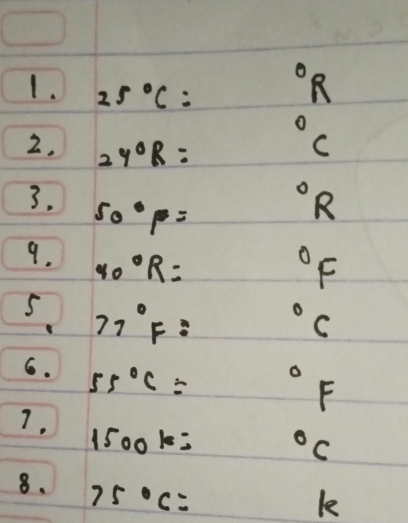 1. 25 °C = °R
2. 24 °R = °C
3. 50 °F = °R
4. 40 °R = °F
5. 77 °F = °C
6. 55 °C = °F
7. 1500 k = °C
8. 75 °C = k